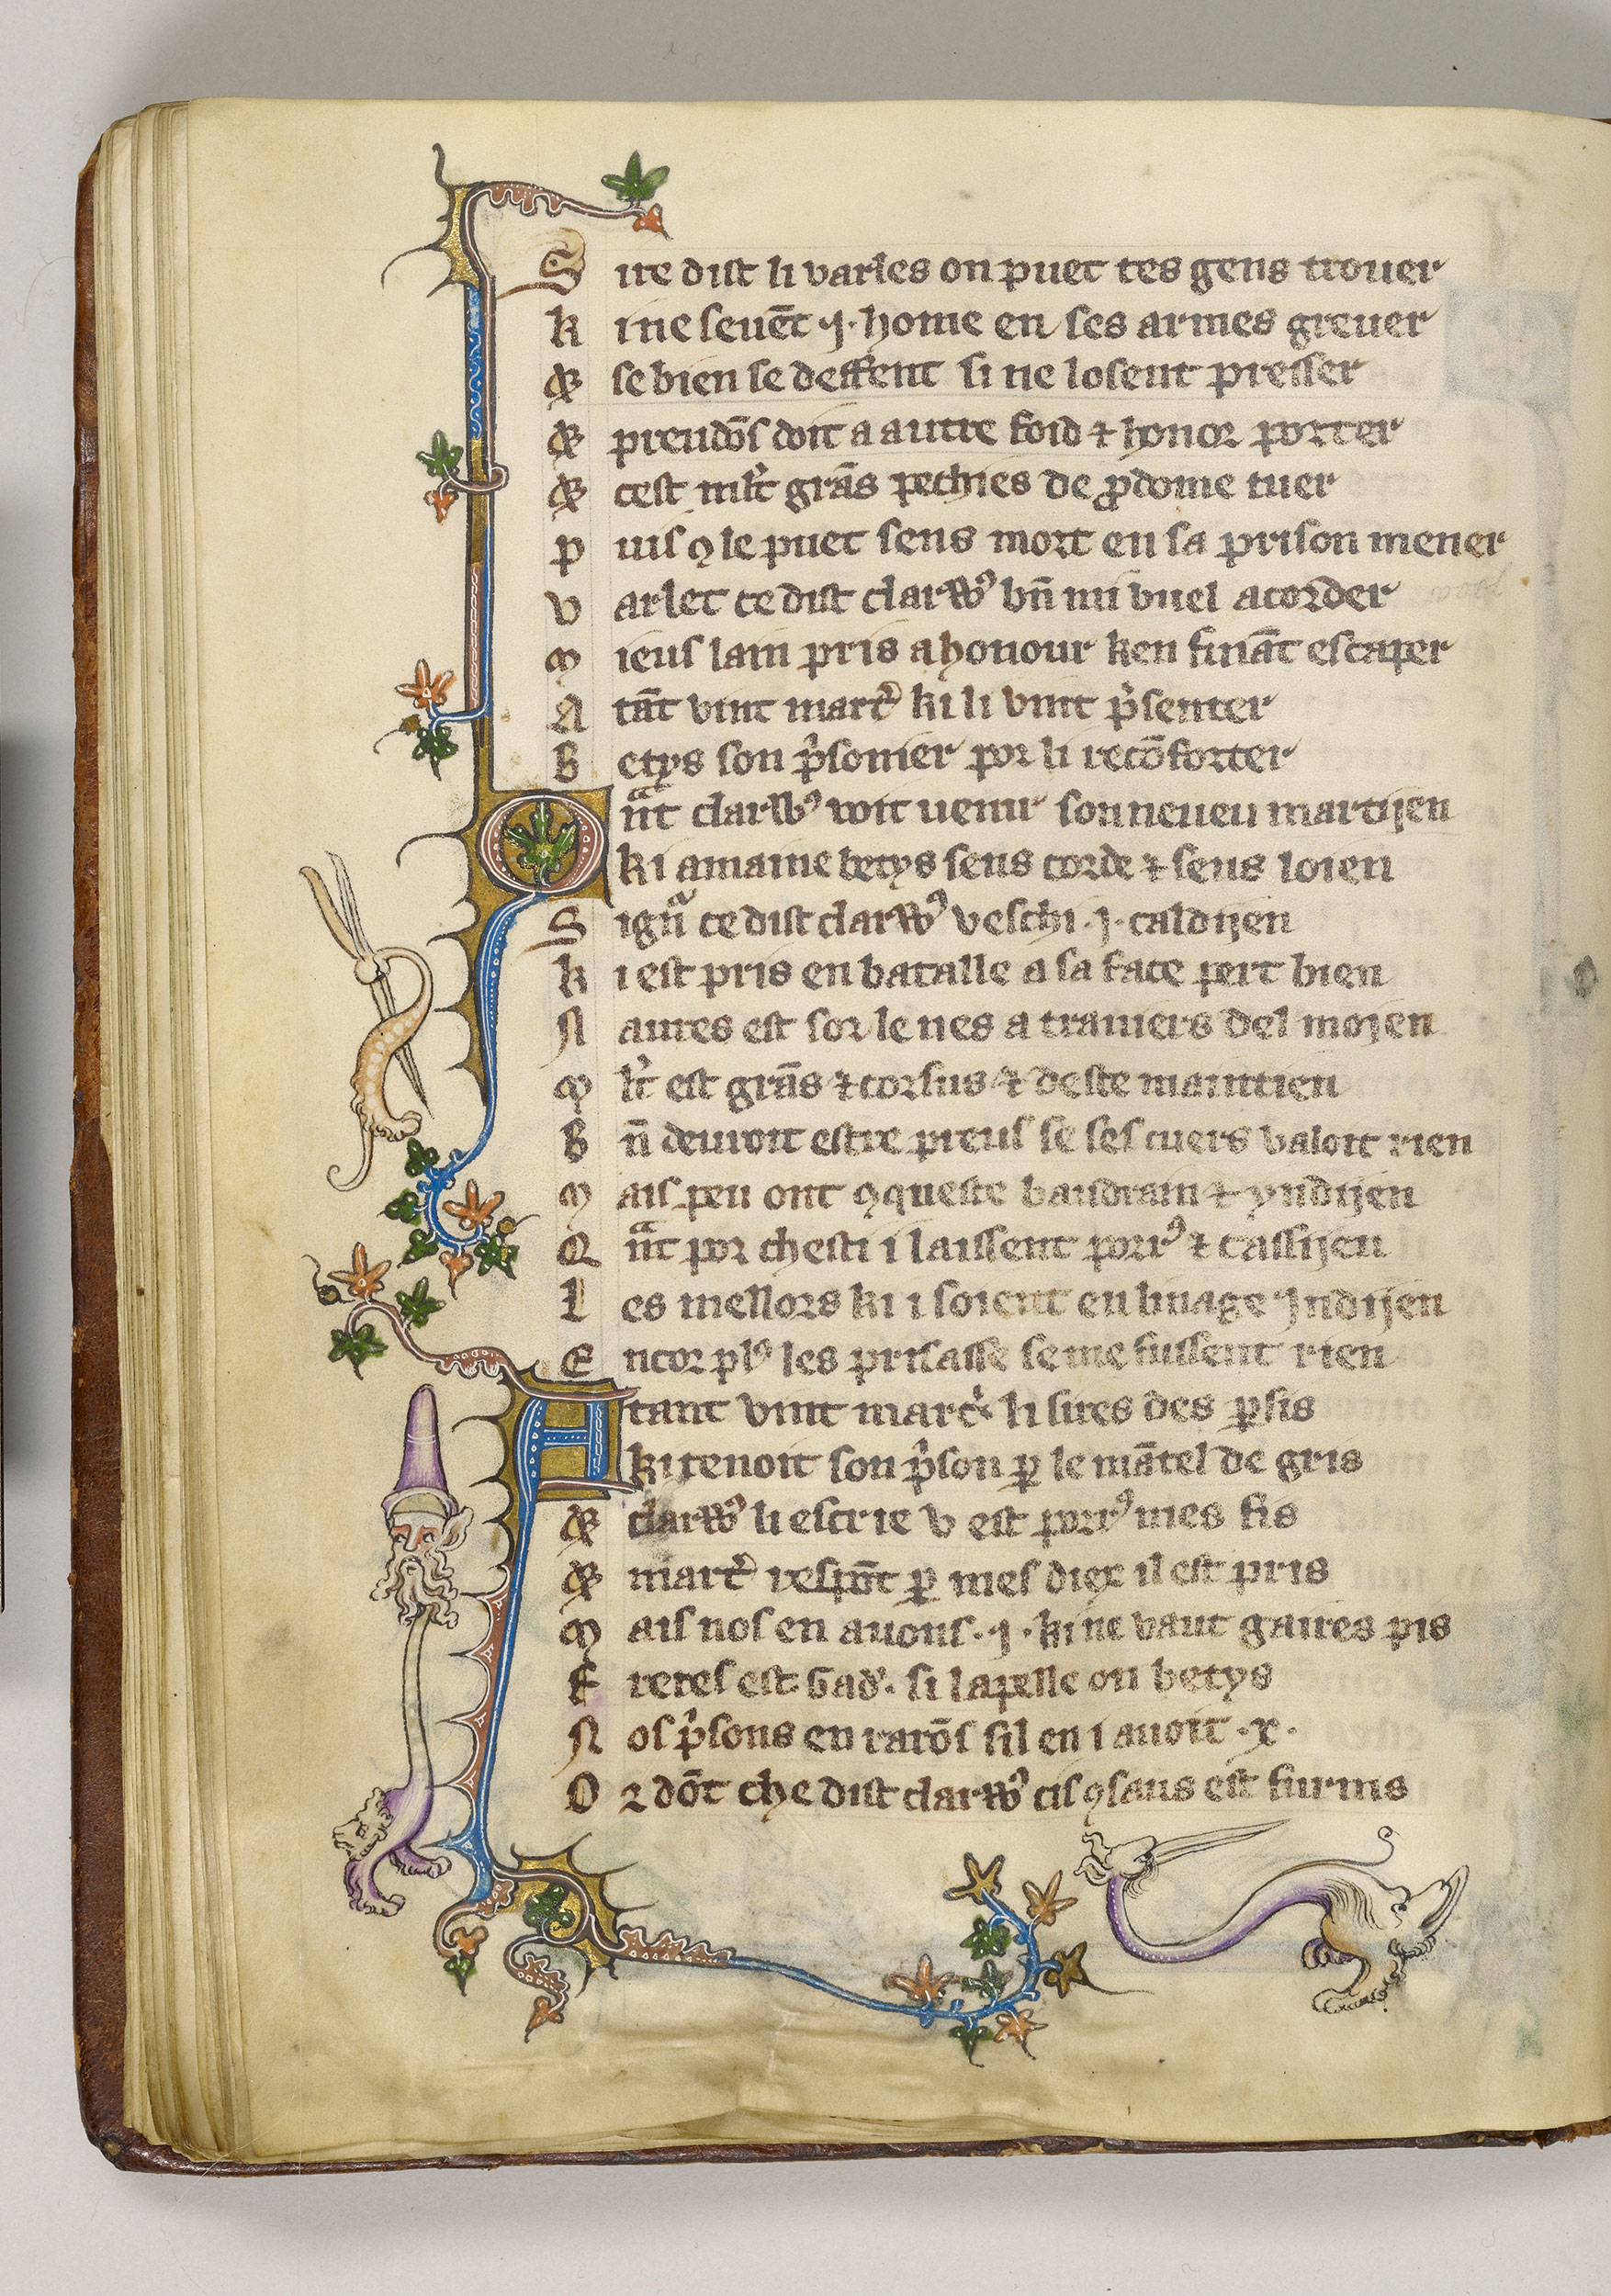 Sire dist li varles on puet tes gens trouer
ki ne seuēt .j. home en ses armes greuer
Et se bien se deffent si ne losent presser
Et preudōs doit a autre foid ⁊ honor porter
Et cest ml't grās pechies de ꝓdome tuer
puis ꝯ le puet sens mort en sa prison mener
varlet ce dist clarwꝰ bn̄ mi vuel acorder
mieus lain pris a honour ken fināt escaper
Atāt vint marc̓ ki li vint p̓senter
Betys son p̓sonier por li recōforter
Qnͣt clarwꝰ voit uenir son neueu martijen
ki amaine betys sens corde ⁊ sens loien
Signͬ ce dist clarwꝰ veschi .j. caldijen
ki est pris en batalle a sa face pert bien
Naures est sor le nes a trauiers del moien
Ml't est grās ⁊ corsus ⁊ de ste maintien
Bn̄ deuroit estre preus se ses cuers valoit rien
Mais peu ont ꝯqueste baudrain ⁊ yndijen
Qnͣt por chesti i laissent porrꝰ ⁊ cassijen
Les mellors ki i soient eu linage Jndijen
Encor plꝰ les prisasse se me fussent rien
Atant vint marc̓ li sires des ꝑsis
ki tenoit son p̓son ꝑ le mātel de gris
Et clarwꝰ li escrie v est porrꝰ mes fis
Et marc̓ respōt ꝑ mes diex il est pris
Mais nos en auons .j. ki ne vaut gaires pis
Freres est gad̓. si lapelle on betys
Nos p̓sons en rarōs sil en i auoit .x.
Or dōt che dist clarwꝰ cis ꝯsaus est furnis